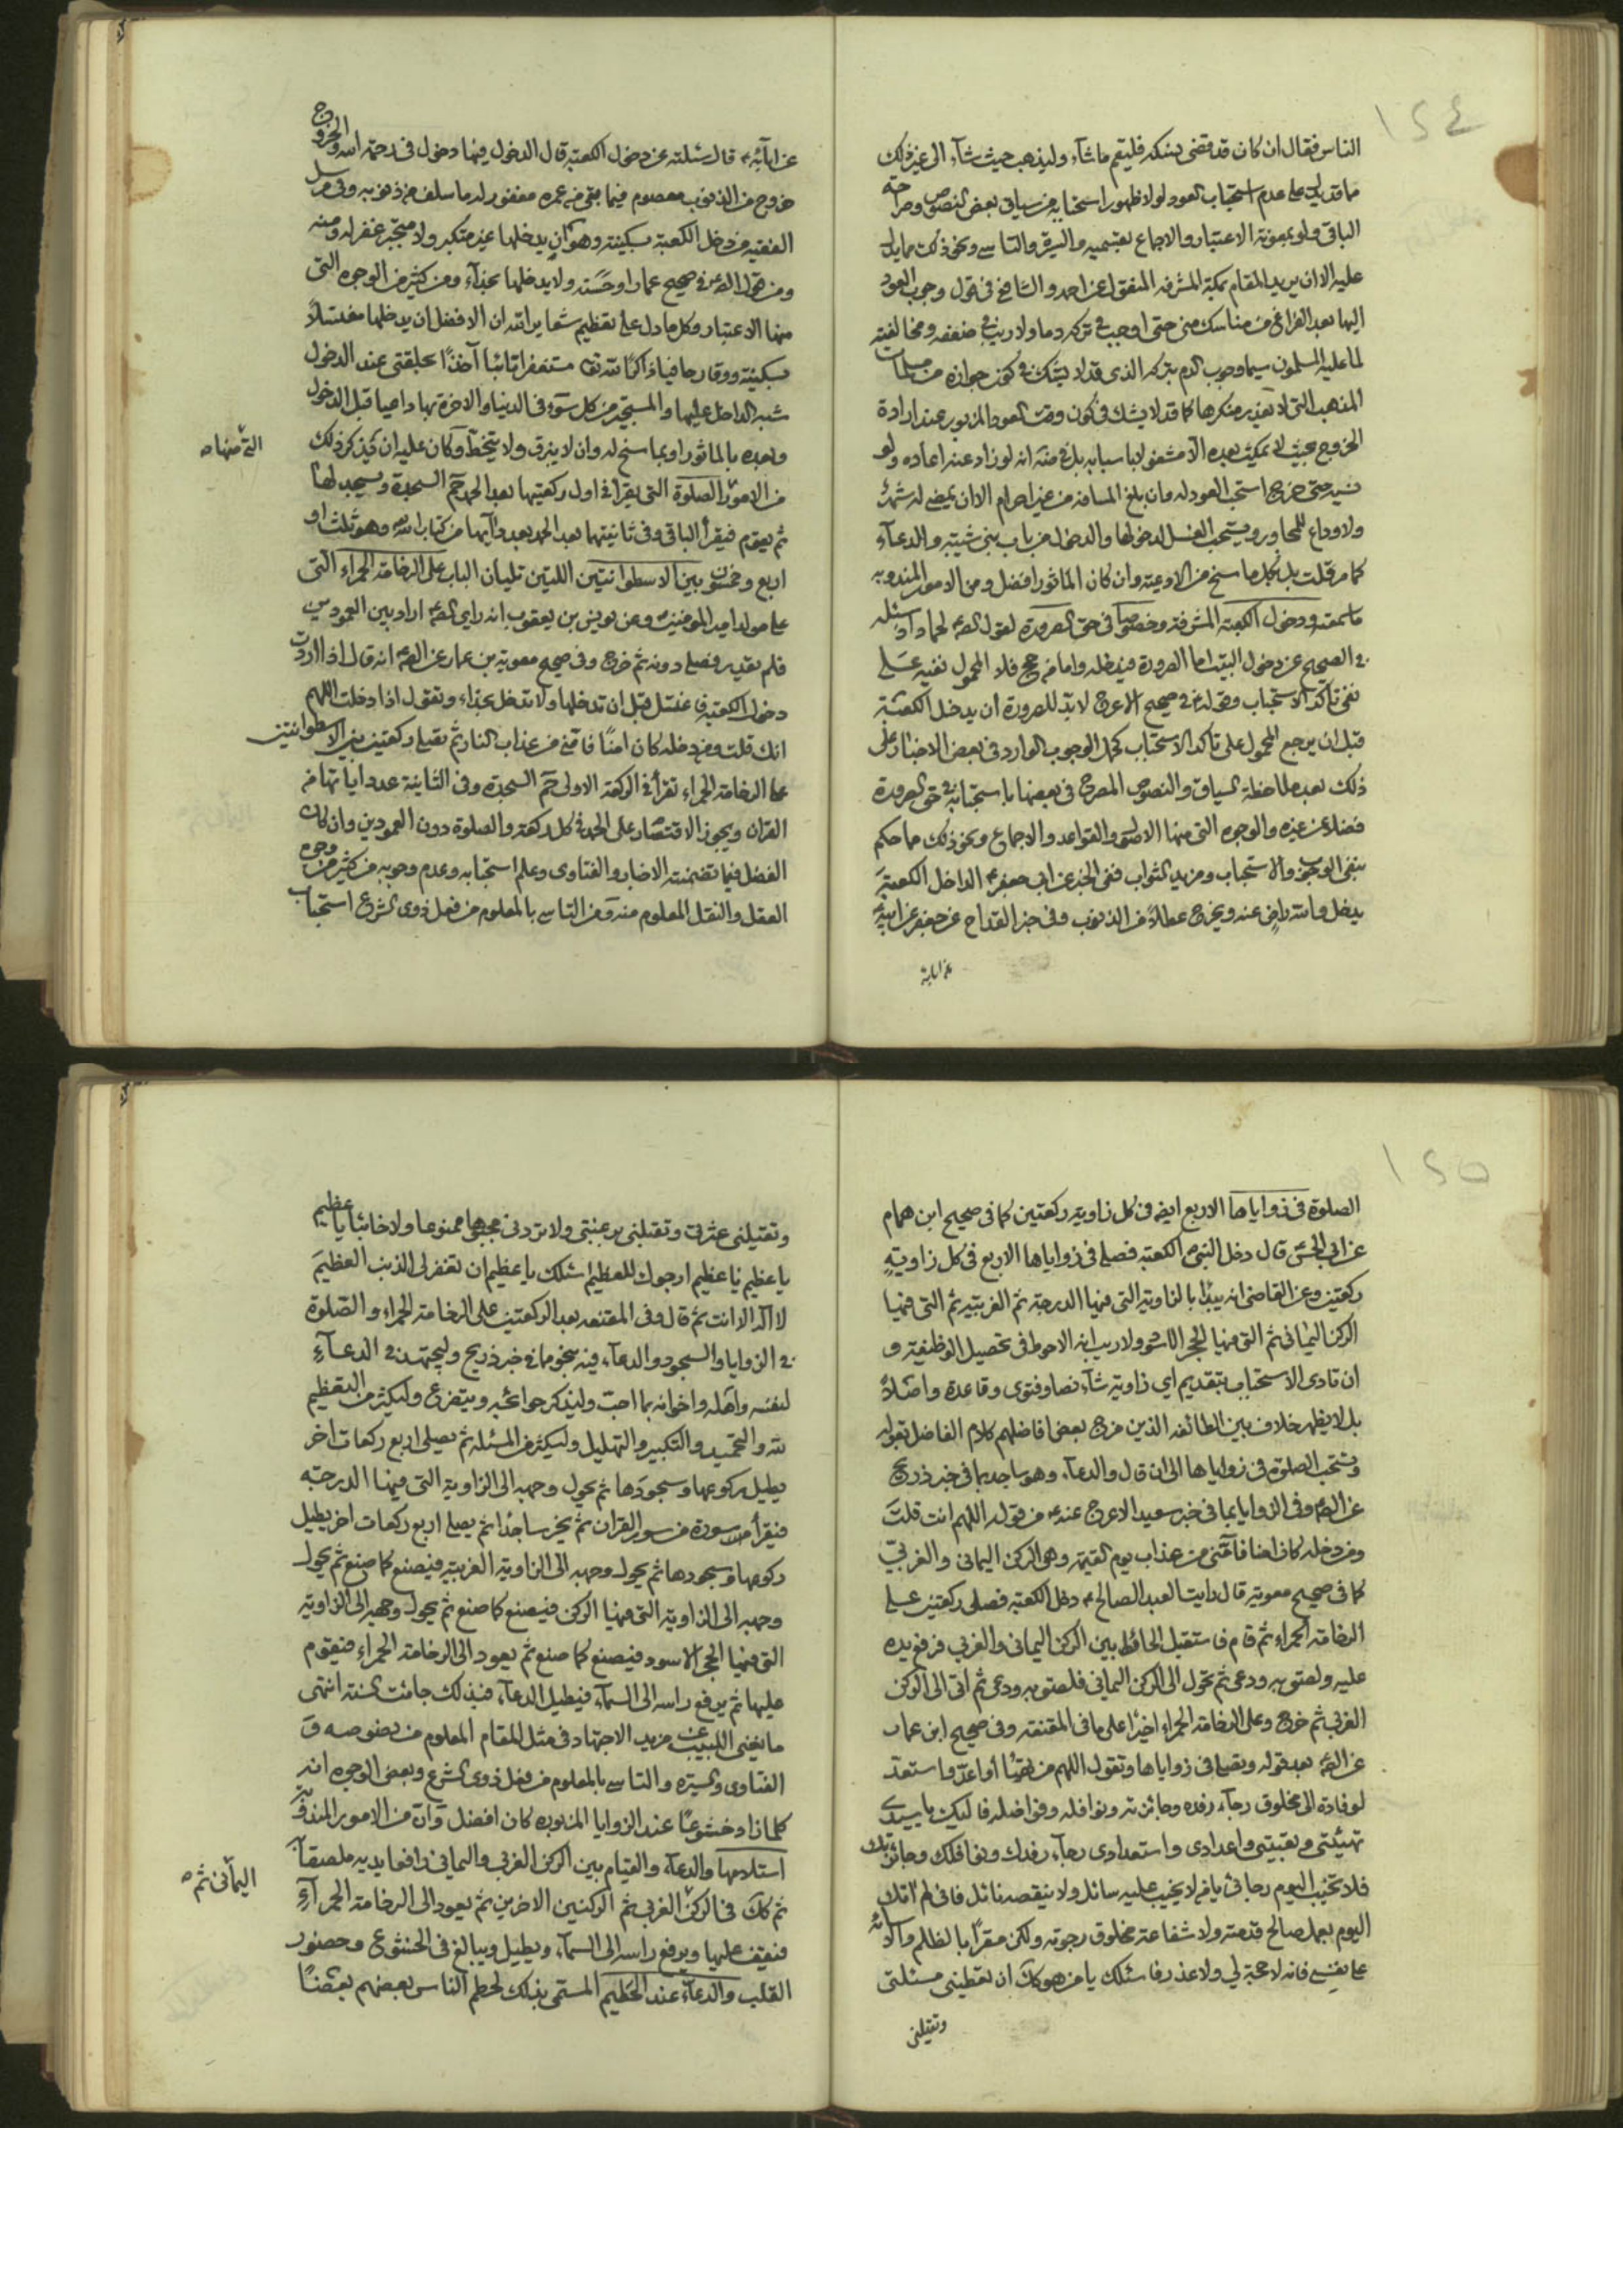 ١٢٤
الناس فقال ان كان قد قضى نسكه فليقم ماشآء وليذهب حيث شآء الى غير ذلك
مما قد يدل على عدم استحباب العود لولا ظهور استحبابه من سياق بعض النصوص وصراحة
الباقى ولو بمعونة الاعتبار والاجماع بقسميه والسيرة والتاسى ونحو ذلك مما يدل
عليه الا ان يريد المقام بمكة المشرفة المنقول عن احمد والشافعى فى قول وجوب العود
اليها بعد الفراغ من مناسك منى حتى اوجب فى تركه دما ولا ريب فى ضعفه ومخالفته
لما عليه المسلمون سيما وجوب الدم بتركه الذى قد لا يشك فى كون جوازه من مسلمات
المذهب التى لا يعذر منكرها كما قد لا يشك فى كون وقت العود المزبور عند ارادة
الخروج بحيث لا يمكث بعده الا مشغولا باسبابه بل فى منه انه لو زاد عنه اعاده ولو
نسيه حتى خرج استحب العود له وان بلغ المسافة من غير احرام الا ان يمضى له شهر
ولا وداع للمجاور ويستحب الغسل لدخولها والدخول من باب بنى شيبه والدعآء
كما مر قلت بل بكل ما سنح من الادعية وان كان الماثور افضل ومن الامور المندوبه
ما سمعته ودخول الكعبة المشرفة وخصوصا فى حق الصرورة لقول الص لحماد اذ سئله
فى الصحيح عن دخول البيت اما الصرورة فيدخله واما من حج فلا المحمول نفيه على
نفى تأكد الاستحباب وقوله فى صحيح الاعرج لا بد للصرورة ان يدخل الكعبة
قبل ان يرجع المحمول على تأكد الاستحباب كحمل الوجوب الوارد فى بعض الاخبار على
ذلك بعد ملاحظة السياق والنصوص المصرح فى بعضها باستحبابه فى حق الصرورة
فضلا عن غيره والوجوه التى منها الاصول والقواعد والاجماع ونحو ذلك مما حكم
بنفى الوجوب والاستحباب ومزيد الثواب ففى الخبر عن ابى جعفر الداخل الكعبة
يدخل والله راض عنه ويخرج عطلا من الذنوب وفى خبر القداح عن جعفر عن ابيه
عن آبائه
عن آبائه قال سئلته عن دخول الكعبة قال الدخول فيها دخول فى رحمة الله والخروج
خروج من الذنوب معصوم فيما بقى من عمره مغفور له ما سلف من ذنوبه وفى مرسل
الفقيه من دخل الكعبة بسكينة وهو ان يدخلها غير متكبر ولا متجبر غفر له ومنه
ومن قول الص فى صحيح عمار او حسنه ولا يدخلها بحذآء ومن كثير من الوجوه التى
منها الاعتبار وكل ما دل على تعظيم شعاير الله ان الافضل ان يدخلها مغتسلا
بسكينة ووقار حافيا ذاكرا لله تع مستغفرا تائبا آخذا بحلقتى عند الدخول
شبه الداخل عليها والمستجير من كل سوء فى الدنيا والاخرة بها داعيا قبل الدخول
وبعده بالماثور او بما سنح له وان لا يبزق ولا يتمخط وكان عليه ان يذكر ذلك
التى منها
من الامور الصلوة التى يقرأ فى اول ركعتيها بعد الحمد حم السجدة ويسجد لها
ثم يقوم فيقرأ الباقى وفى ثانيتهما بعد الحمد بعدد آيها من كتاب الله وهو ثلث او
اربع وخمسون بين الاسطوانتين اللتين تليان الباب على الرخامة الحمراء التى
على مولد امير المومنين وعن يونس بن يعقوب انه راى الص اراد بين العمودين
فلم يقدر فصلى دونه ثم خرج وفى صحيح معوية بن عمار عن الص انه قال اذا اردت
دخول الكعبة فاغتسل قبل ان تدخلها ولا تدخل بحذاء وتقول اذا دخلت اللهم
انك قلت ومن دخله كان امنا فامنى من عذاب النار ثم تصلى ركعتين بين الاسطوانتين
على الرخامة الحمراء تقرأ فى الركعة الاولى حم السجدة وفى الثانية عدد اياتها من
القران ويجوز الاقتصار على الحمد فى كل ركعة والصلوة دون العمودين وان كان
الفضل فيما تضمنته الاخبار والفتاوى وعلم استحبابه وعدم وجوبه من كثير من وجوه
العقل والنقل المعلوم منه ومن التاسى بالمعلوم من فعل ذوى الشرع استحباب
١٢٥
الصلوة فى زواياها الاربع ايضا فى كل زاوية ركعتين كما فى صحيح ابن همام
عن ابى الحسن قال دخل النبى الكعبة فصلى فى زواياها الاربع فى كل زاوية
ركعتين وعن القاضى انه يبدأ بالزاوية التى فيها الدرجة ثم الغربية ثم التى فيها
الركن اليمانى ثم التى فيها الحجر الاسود ولا ريب انه الاحوط فى تحصيل الوظيفة و
ان تادى الاستحباب بتقديم اى زاوية شآء نصا وفتوى وقاعدة واصلا
بل لا يظهر خلاف بين الطائفة الذين مزج بعض افاضلهم كلام الفاضل بقوله
ويستحب الصلوة فى زواياها الى ان قال والدعآء وهو ساجد بما فى خبر ذريح
عن الص وفى الزوايا بما فى خبر سعيد الاعرج عنه من قوله اللهم انت قلت
ومن دخله كان امنا فآمنى من عذاب يوم القيمة وهى الركن اليمانى والغربى
كما فى صحيح معوية قال رايت العبد الصالح دخل الكعبة فصلى ركعتين على
الرخامة الحمراء ثم قام فاستقبل الحائط بين الركن اليمانى والغربى فرفع يده
عليه ولصق به ودعى ثم تحول الى الركن اليمانى فلصق به ودعى ثم اتى الى الركن
الغربى ثم خرج وعلى الرخامة الحمراء اخيرا على ما فى المقنعة وفى صحيح ابن عمار
عن الص بعد قوله وتصلى فى زواياها وتقول اللهم من تهيأ او اعد واستعد
لوفادة الى مخلوق رجآء رفده وجائزته ونوافله وفواضله فاليك يا سيدى
تهيئتى وتعبيتى واعدادى واستعدادى رجآء رفدك ونوافلك وجائزتك
فلا تخيب اليوم رجائى يا من لا يخيب عليه سائل ولا ينقصه نائل فانى لم اتك
اليوم بعمل صالح قدمته ولا شفاعة مخلوق رجوته ولكن مقرا بالظلم والاسائة
على نفسى فانه لا حجة لى ولا عذر فاسئلك يا من هو كك ان تعطينى مسئلتى
وتقيلنى
وتقيلنى عثرتى وتقبلنى برغبتى ولا تردنى مجبوها ممنوعا ولا خائبا يا عظيم
يا عظيم يا عظيم ارجوك للعظيم اسئلك يا عظيم ان تغفر لى الذنب العظيم
لا اله الا انت ثم قال وفى المقنعه بعد الركعتين على الرخامة الحمراء والصلوة
فى الزوايا والسجود والدعآء فيه بنحو ما فى خبر ذريح وليجتهد فى الدعآء
لنفسه واهله واخوانه بما احب وليذكر حوائجه ويتضرع وليكثر من التعظيم
لله والتحميد والتكبير والتهليل وليكثر من المسئلة ثم يصلى اربع ركعات اخر
يطيل ركوعها وسجودها ثم يحول وجهه الى الزاوية التى فيها الدرجة
فيقرأ سورة من سور القران ثم يخر ساجدا ثم يصلى اربع ركعات اخر يطيل
ركوعها وسجودها ثم يحول وجهه الى الزاوية الغربية فيصنع كما صنع ثم يحول
وجهه الى الزاوية التى فيها الركن فيصنع كما صنع ثم يحول وجهه الى الزاوية
التى فيها الحجر الاسود فيصنع كما صنع ثم يعود الى الرخامة الحمراء فيقوم
عليها ثم يرفع راسه الى السمآء فيطيل الدعآء فبذلك جائت السنة انتهى
ما يغنى اللبيب عن مزيد الاجتهاد فى مثل المقام المعلوم من نصوصه و
الفتاوى والسيرة والتاسى بالمعلوم من فعل ذوى الشرع وبعض الوجوه انه
كلما زاد خشوعا عند الزوايا المزبوره كان افضل وان من الامور المندوبة
استلامها والدعآء والقيام بين الركن الغربى واليمانى رافعا يديه ملصقا
اليمانى ثم
ثم كك فى الركن الغربى ثم الركنين الاخرين ثم يعود الى الرخامة الحمرآء
فيقف عليها ويرفع راسه الى السمآء ويطيل ويبالغ فى الخشوع وحضور
القلب والدعآء عند الحطيم المسمى بذلك لحطم الناس بعضهم بعضا